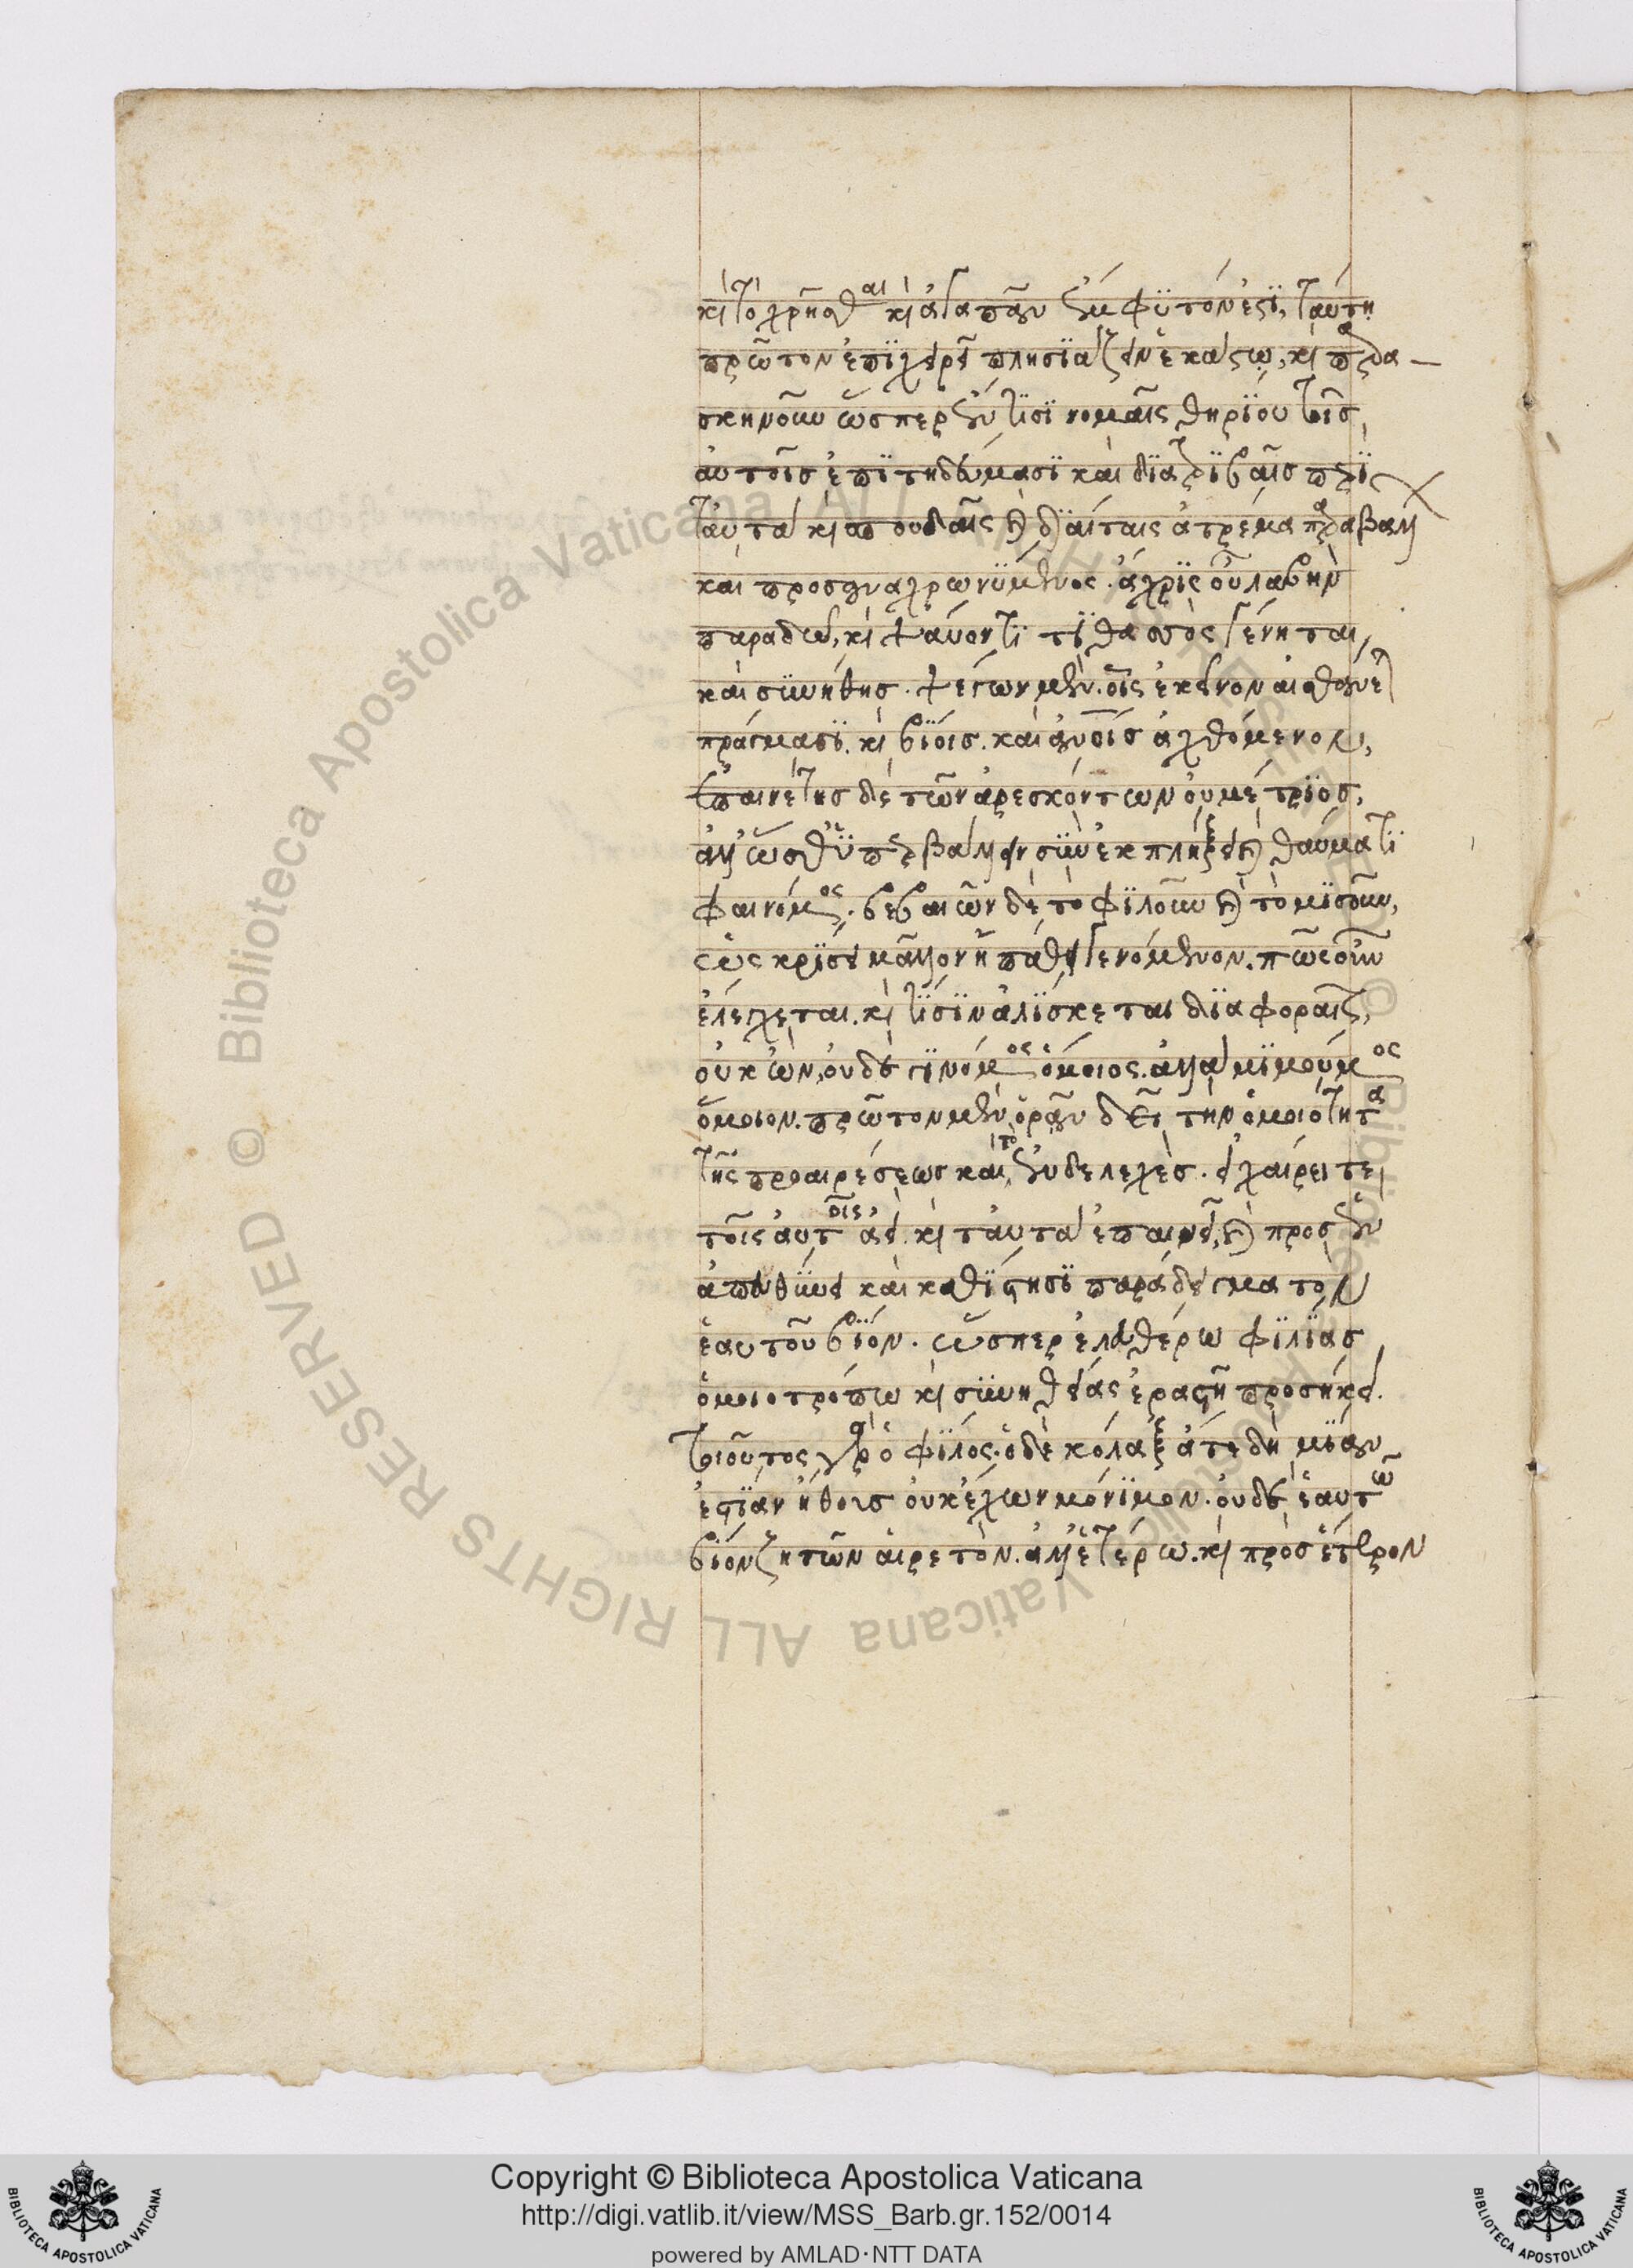 καὶ τὸ χρῆσθαι καὶ ἀγαπᾶν ἐμφυτόν ἐστι, ταύτη
πρῶτον ἐπιχειρεῖ πλησιάζειν ἑκάστω, καὶ παρα–
σκηνοῦν ὥσπερ ἐν τισὶ νομαῖς θηρίου τοῖς
αὐτοῖς ἐπιτηδεύμασι καὶ διατριβαῖς περὶ
ταὐτὰ καὶ σπουδαῖς καὶ διαίταις ἀτρέμα παραβάλλ
καὶ προσαναχρωννύμενος. ἄχρις οὗ λαβὴν
παραδῶ, καὶ ψαύοντι τιθασὸς γένηται
καὶ συνήθης. ψέγων μὲν. οἷς ἐκεῖνον αἰσθάνε
πράγμασι. καὶ βίοις. καὶ ἀνοῖς ἀχθόμενον,
ἐπαινέτης δὲ τῶν ἀρεσκόντων οὐ μέτριος,
ἀλλ' ὥσθ' ὑπερβάλλειν σὺν ἐκπλήξει καὶ θαύματι
φαινόμενος. βεβαιῶν δὲ τὸ φιλοῦν καὶ τὸ μισοῦν,
ὡς κρίσει μᾶλλον ἢ πάθει γενόμενον. πῶς οὖν
ἐλέγχεται. καὶ τίσιν ἁλίσκεται διαφοραῖς,
οὐκ ὢν, οὐδὲ γινόμενος ὅμοιος. ἀλλὰ μιμούμενος
ὅμοιον. πρῶτον μὲν ὁρᾶν δεῖ τὴν ὁμοιότητα
τῆς προαιρέσεως καὶ τὸ ἐνδελεχὲς. εἰ χαίρει τε
τοῖς αὐτοῖς ἀεὶ. καὶ ταὐτὰ ἐπαινεῖ, καὶ πρὸς ἓν
ἀπευθύνει καὶ καθίστησι παράδειγμα τὸν
ἑαυτοῦ βίον. ὥσπερ ἐλευθέρω φιλίας
ὁμοιοτρόπω καὶ συνηθείας ἐραστῆ προσήκει.
τοιοῦτος γὰρ ὁ φίλος. ὁ δὲ κόλαξ ἅτε δὴ μίαν
ἑστίαν ἤθους οὐκ ἔχων μόνιμον. οὐδὲ ἑαυτῶ
βίον ζητῶν αἱρετὸν. ἀλλ' ἑτέρω. καὶ πρὸς ἕτερον
Copyright © Biblioteca Apostolica Vaticana
http://digi.vatlib.it/view/MSS_Barb.gr.152/0014
powered by AMLAD·NTT DATA